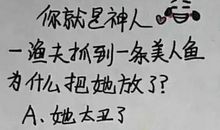 你就是神人
一渔夫抓到一条美人鱼
为什么把她放了?
A、她太丑了